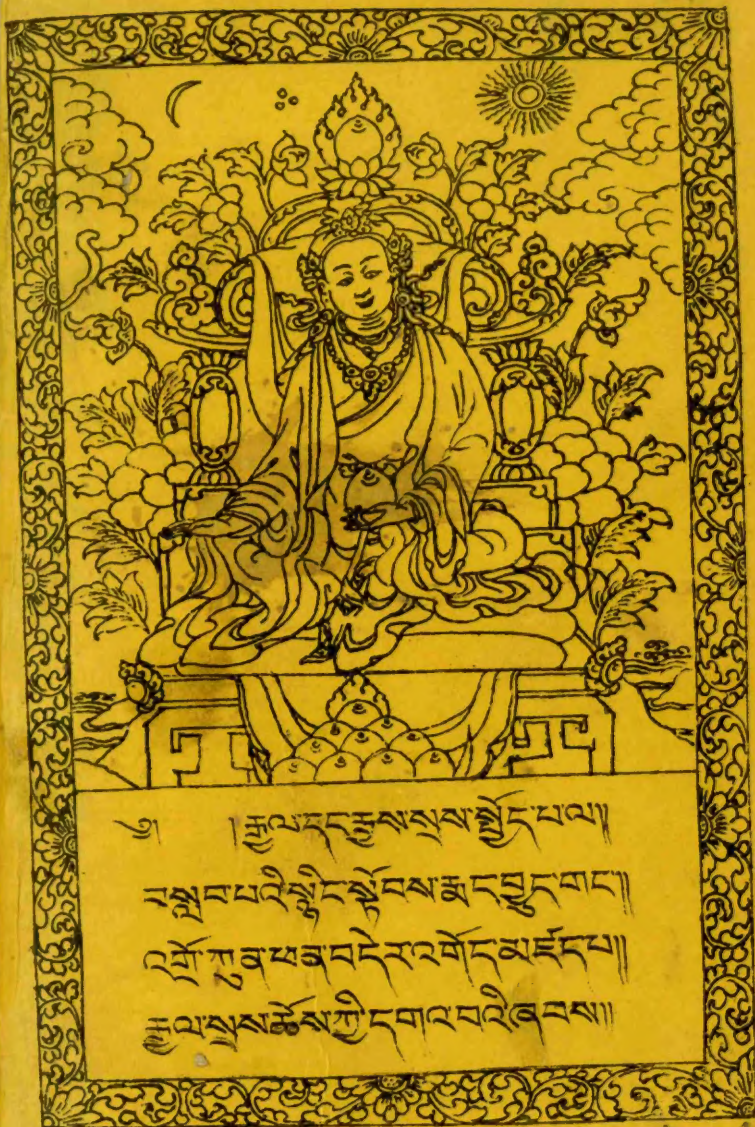 ༄། །རྒྱལ་དང་རྒྱས་སྲས་སྤྱོད་པ་ལ།།
བསླབ་པའི་སྙིང་སྟོབས་རྨད་བྱུང་གང་།།
འགྲོ་ཀུན་ཕན་བདེར་འགོད་མཛད་པ།།
རྒྱལ་སྲས་ཆོས་ཀྱི་དགའ་བའི་ཞབས།།